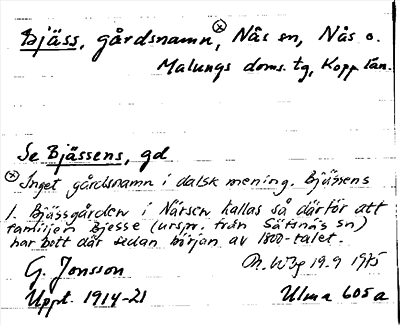 Bjäss, gårdsnamn, Nås sn, Nås o.
Malungs doms. tg, Kopp. län.
Se Bjässens, gd
Inget gårdsnamn i dalsk mening. Bjässens
l. Bjässgården i Närsen kallas så därför att
familjen Bjesse (urspr. från Säfsnäs sn)
har bott där sedan början av 1800-talet.
G. Jonsson
19.9 1975
Uppt. 1914-21
Ulma 605a